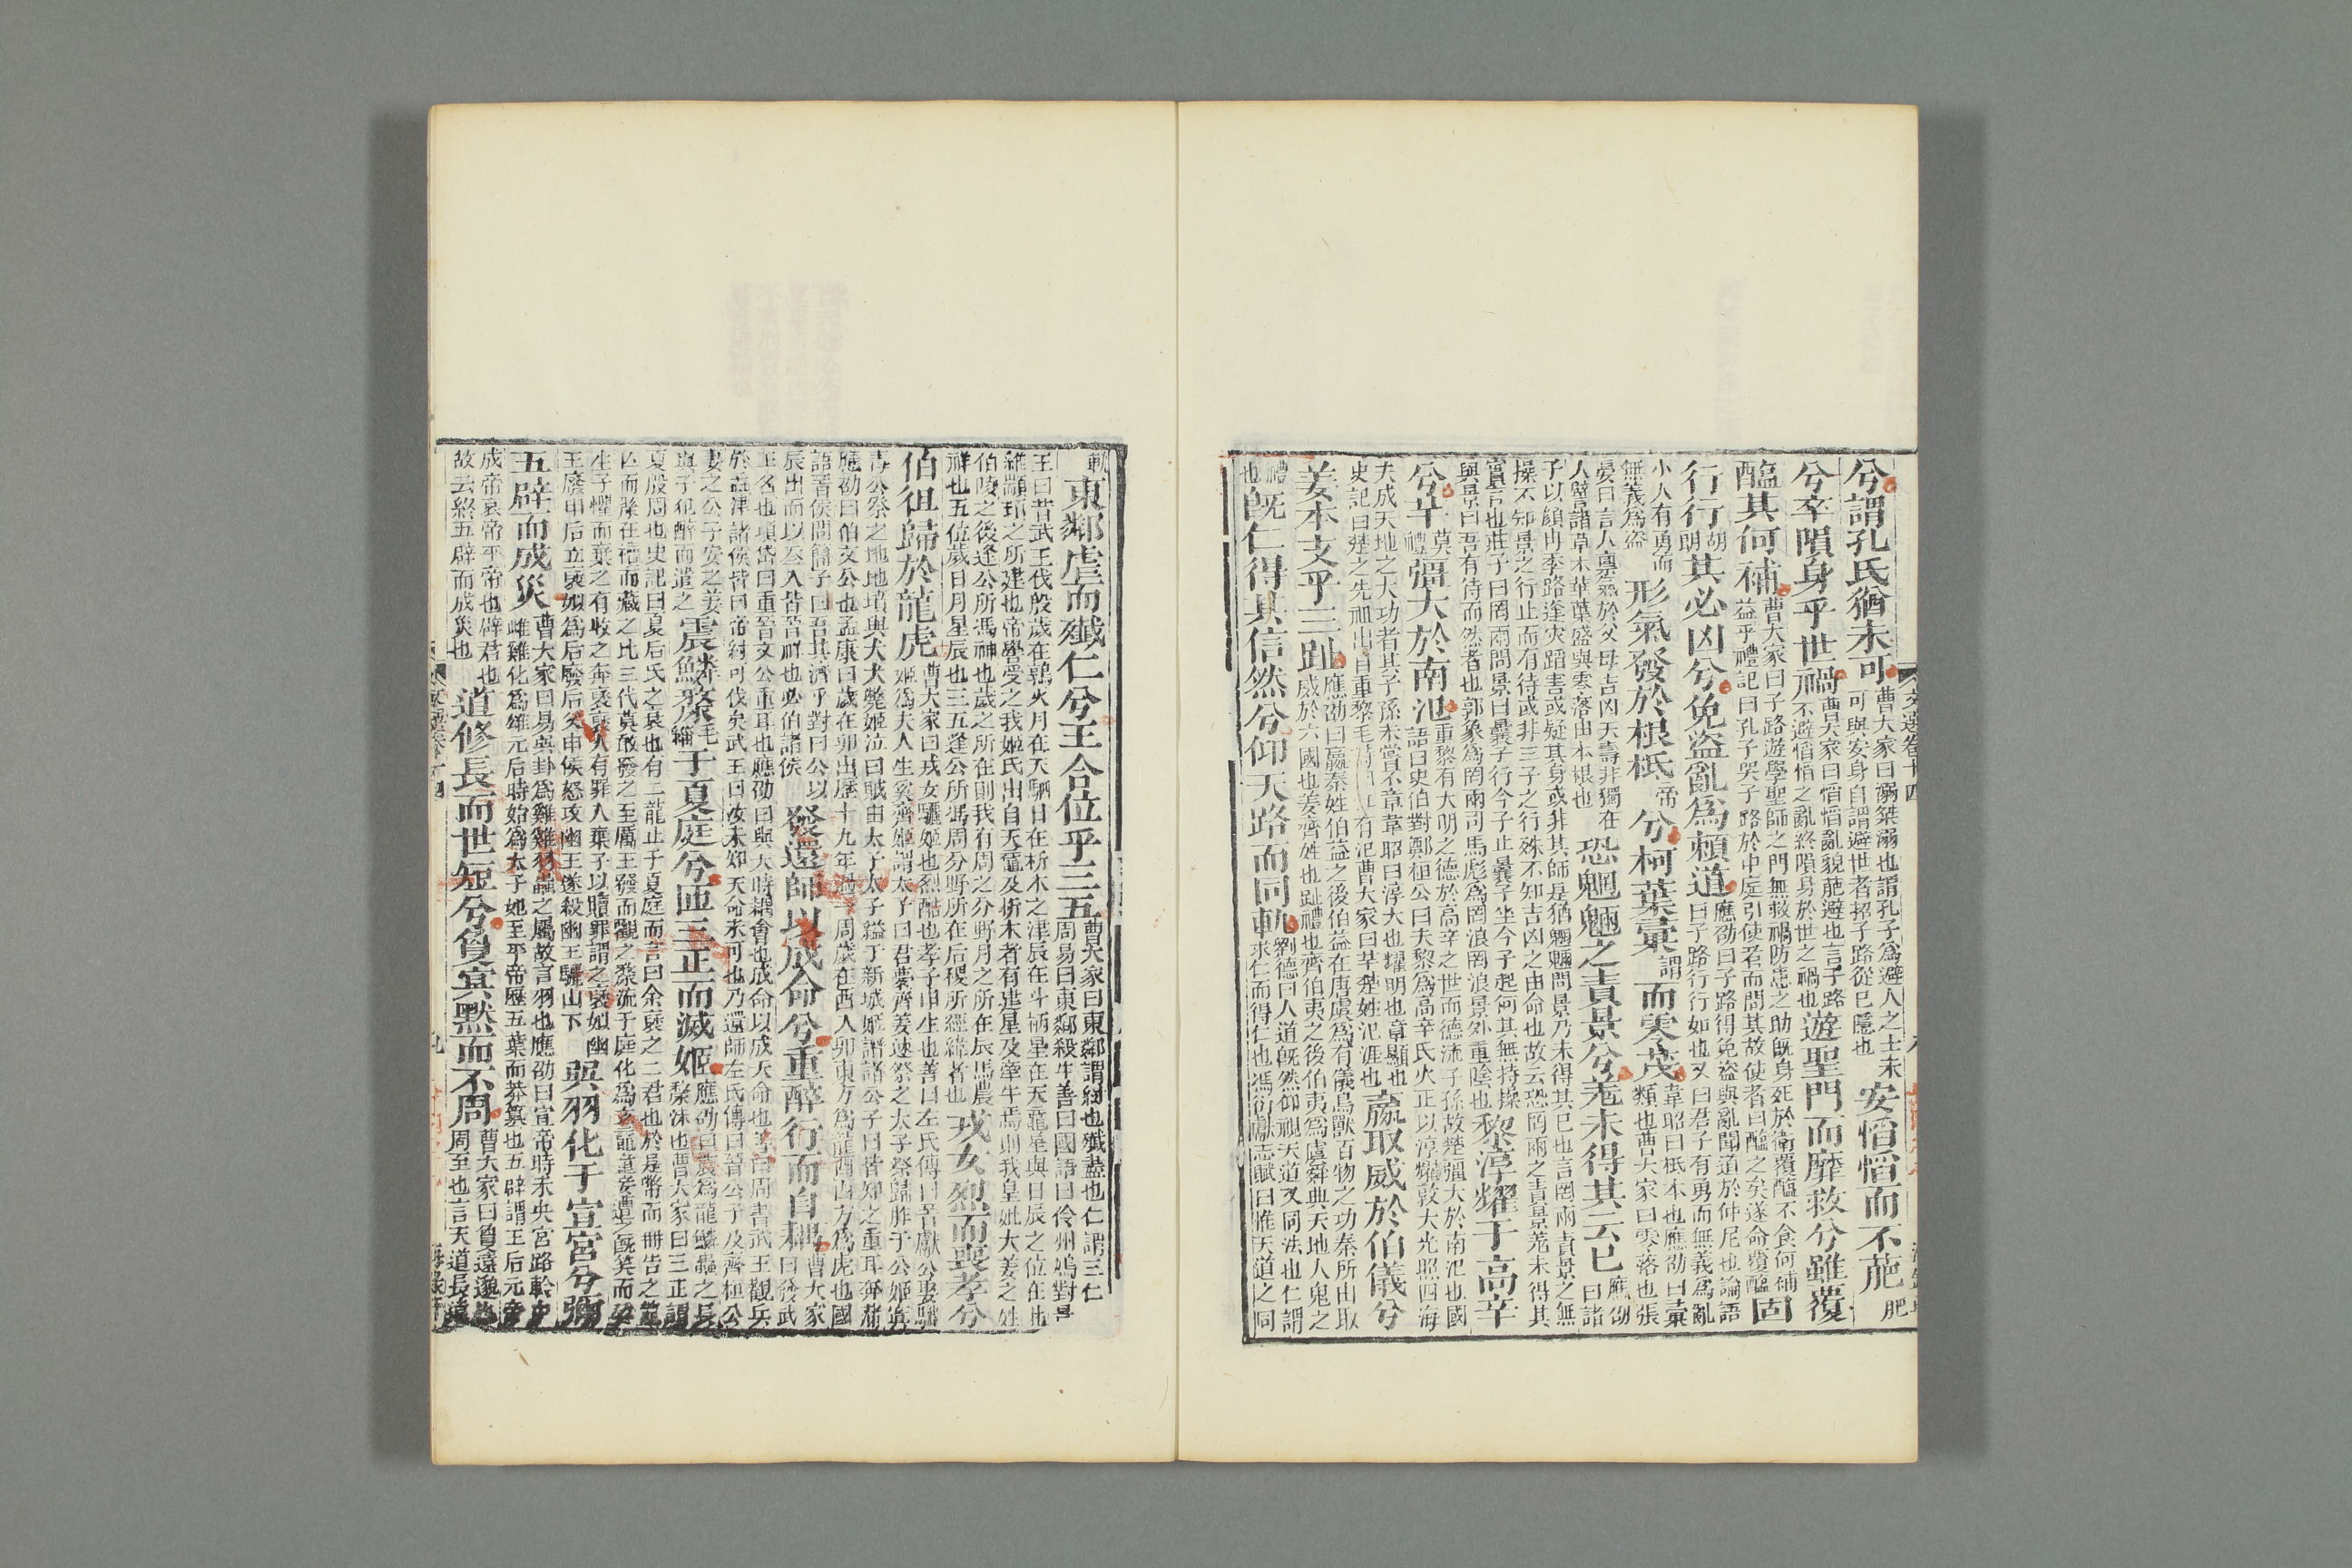 兮謂孔氏猶未可曹大家曰溺桀溺也謂孔子為避人之士未可與安身自謂避世者招子路從已隱也安慆慆而不萉肥
兮卒隕身乎世禍曹大家曰慆慆亂貌萉避也言子路不避慆慆之亂終隕身於世之禍也遊聖門而靡救兮雖覆
醢其何補曹大家曰子路遊學聖師之門無救禍防患之助既身死於衛覆醢不食何補益乎禮記曰孔子哭子路於中庭引使者而問其故使者曰醢之矣遂命覆醢固
行行胡朗其必凶兮免盜亂為賴道應劭曰子路得免盜與亂聞道於仲尼也論語曰子路行行如也又曰君子有勇而無義為亂
小人有勇而無義為盜形氣發於根柢帝兮柯葉彙謂而零茂韋昭曰柢本也應劭曰彙類也曹大家曰零落也張
晏曰言人稟氣於父母吉凶夭壽非獨在人譬諸草木華葉盛與零落由本根也恐魍魎之責景兮羌未得其云已應劭曰諸
子以顏冉季路逢灾蹈害或疑其身或非其師是猶魍魎問景乃未得其已也言罔兩責景之無操不知景之行止而有待或非三子之行殊不知吉凶之由命也故云恐罔兩之責景羌未得其
實言也莊子曰罔兩問景曰曩子行今子止曩子坐今子起何其無持操與景曰吾有待而然者也郭象為罔兩司馬彪為罔浪罔浪景外重陰也黎淳耀于高辛
兮羋彊大於南汜重黎有大明之德於高辛之世而德流子孫故楚彊大於南汜也國語曰史伯對鄭桓公曰夫黎為高辛氏火正以淳耀敦大光照四海
夫成天地之大功者其子孫未嘗不章韋昭曰淳大也耀明也章顯也史記曰楚之先祖出自重黎毛詩曰江有汜曹大家曰羋楚姓汜涯也嬴取威於伯儀兮
姜本支乎三趾應劭曰嬴秦姓伯益之後伯益在唐虞為有儀鳥獸百物之功秦所由取威於六國也姜齊姓也趾禮也齊伯夷之後伯夷為虞舜典天地人鬼之
禮也既仁得其信然兮仰天路而同軌劉德曰人道既然仰視天道又同法也仁謂求仁而得仁也馮衍顯志賦曰惟天道之同
軌東鄰虐而殲仁兮王合位乎三五曹大家曰東鄰謂紂也殲盡也仁謂三仁周易曰東鄰殺牛善曰國語曰伶州鳩對景
王曰昔武王伐殷歲在鶉火月在天駟日在析木之津辰在斗柄星在天黿星與日辰之位在北維顓頊之所建也帝嚳受之我姬氏出自天黿及析木者有建星及牽牛焉則我皇妣大姜之姪
伯陵之後逢公所馮神也歲之所在則我有周之分野月之所在辰馬農祥也五位歲日月星辰也三五逢公所馮周分野所在后稷所經緯者也戎女烈而喪孝兮
伯徂歸於龍虎曹大家曰戎女驪姬也烈酷也孝子申生也善曰左氏傳曰晉獻公娶驪姬為夫人生奚齊姬謂太子曰君夢齊姜速祭之太子祭歸胙于公姬寘
毒公祭之地地墳與犬犬斃姬泣曰賊由太子太子縊于新城姬譖諸公子曰皆知之重耳奔蒲應劭曰伯文公也孟康曰歲在卯出歷十九年過一周歲在酉入卯東方為龍酉西方為虎也國
語晉侯問簡子曰吾其濟乎對曰公以辰出而以參入皆晉祥也必伯諸侯發還師以成命兮重醉行而自耦曹大家曰發武
王名也項岱曰重晉文公重耳也應劭曰與天時耦會也成命以成天命也善曰周書武王觀兵於孟津諸侯皆曰帝紂可伐矣武王曰汝未知天命未可也乃還師左氏傳曰晉公子及齊桓公
妻之公子安之姜與子犯醉而遣之震鱗漦于夏庭兮匝三正而滅姬應劭曰震為龍鱗蟲之長漦沫也曹大家曰三正謂
夏殷周也史記曰夏后氏之衰也有二龍止于夏庭而言曰余褒之二君也於是幣而冊告之龍亡而漦在櫝而藏之比三代莫敢發之至厲王發而觀之漦流于庭化為玄黿童妾遭之既笄而孕
生子懼而棄之有收之奔褒褒人有罪入棄子以贖罪謂之褒姒幽王廢申后立褒姒為后廢后父申侯怒攻幽王遂殺幽王驪山下巽羽化于宣宮兮彌
五辟而成災曹大家曰易巽卦為雞雞羽蟲之屬故言羽也應劭曰宣帝時未央宮路軨中雌雞化為雄元后時始為太子妃至平帝歷五葉而莽篡也五辟謂王后元帝
成帝哀帝平帝也辟君也故云終五辟而成災也道修長而世短兮夐冥默而不周曹大家曰夐遠邈也周至也言天道長遠
文選卷十四